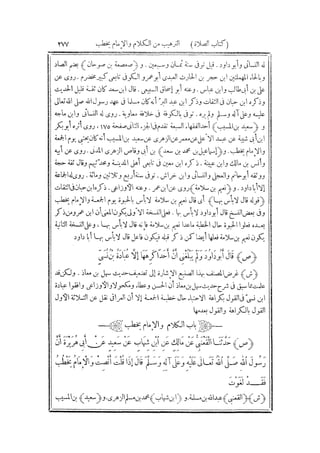 (كتاب الصلاة) الترهيب من الكلام والإمام يخطب ٢٧٧
له النسائى وأبو داود . قيل توفى سنة ثمان وسبعين . و (صعصعة بن صوحان) بضم الصاد
وبالحاء المهملتين ابن حجر بن الحارث العبدى أبو عمرو الكوفى تابعى كبير مخضرم . روى عن
على بن أبى طالب وابن عباس . وعنه أبو إسحاق السبيعى . قال ابن سعد كان ثقة قليل الحديث
وذكره ابن حبان فى الثقات وذكر ابن عبد البر أنه كان مسلما فى عهد رسول الله صلى الله تعالى
عليه وعلى آله وسلم ولم يره . توفى بالكوفة فى خلافة معاوية . روى له النسائى وابن ماجه
و (سعيد بن المسيب) أحد الفقهاء السبعة تقدم فى الجزء الثانى صفحة ١٧٥ . روى أثره أبو بكر
ابن أبى شيبة عن عبد الأعلى عن معمر عن الزهرى عن سعيد بن المسيب أنه كان يحتبى يوم الجمعة
والإمام يخطب . و (إسماعيل بن محمد بن سعد) بن أبى وقاص الزهرى المدنى . روى عن أبيه
وأنس بن مالك وابن عيينة . ذكره ابن معين فى تابعى أهل المدينة ومحدثيهم وقال ثقة حجة
ووثقه أبو حاتم والعجلى والنسائى وابن خراش . توفى سنة أربع وثلاثين ومائة . روى له الجماعة
إلا أبا داود . و (نعيم بن سلامة) روى عن ابن عمر . وعنه الأوزاعى . ذكره ابن حبان فى الثقات
(قوله قال لا بأس بها) أى قال نعيم بن سلامة لا بأس بالحبوة يوم الجمعة والإمام يخطب
وفى بعض النسخ قال أبو داود لا بأس بها . فعلى النسخة الأولى يكون المعنى أن ابن عمر ومن ذكر
بعده فعلوا الحبوة حال الخطبة ماعدا نعيم بن سلامة فإنه قال لا بأس بها . وعلى النسخة الثانية
يكون نعيم بن سلامة فعلها أيضا كمن ذكر قبله فيكون فاعل قال لا بأس بها أبا داود
(ص) قَالَ أَبُو دَاوُدَ وَلَمْ يَبْلُغْنِى أَنَّ أَحَدًا كَرِهَهَا إِلَّا عُبَادَةَ بْنَ نُسَىٍّ
(ش) غرض المصنف بهذا الصنيع الإشارة إلى تضعيف حديث سهل بن معاذ . ولكن قد
علمت ما سبق فى شرح حديث سهل بن معاذ أن الحسن وعطاء ومكحولا والأوزاعى وافقوا عبادة
ابن نسى فى القول بكراهة الاحتباء حال خطبة الجمعة إلا أن العراقى نقل عن الثلاثة الأول
القول بالكراهة والقول بعدمها
باب الكلام والإمام يخطب
(ص) حَدَّثَنَا الْقَعْنَبِىُّ عَنْ مَالِكٍ عَنِ ابْنِ شِهَابٍ عَنْ سَعِيدٍ عَنْ أَبِى هُرَيْرَةَ أَنَّ
رَسُولَ اللهِ صَلَّى اللهُ تَعَالَى عَلَيْهِ وَعَلَى آلِهِ وَسَلَّمَ قَالَ إِذَا قُلْتَ أَنْصِتْ وَالْإِمَامُ يَخْطُبُ
فَقَدْ لَغَوْتَ
(ش) (القعنبى) عبد الله بن مسلمة . و (ابن شهاب) محمد بن مسلم الزهرى . و (سعيد) بن المسيب